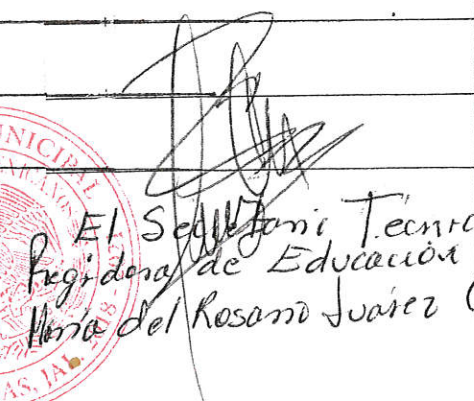 El Secretario Técnic
Regidora de Educación
María del Rosario Juárez C
NICIPAL
MEXICANOS
AS, JAL.